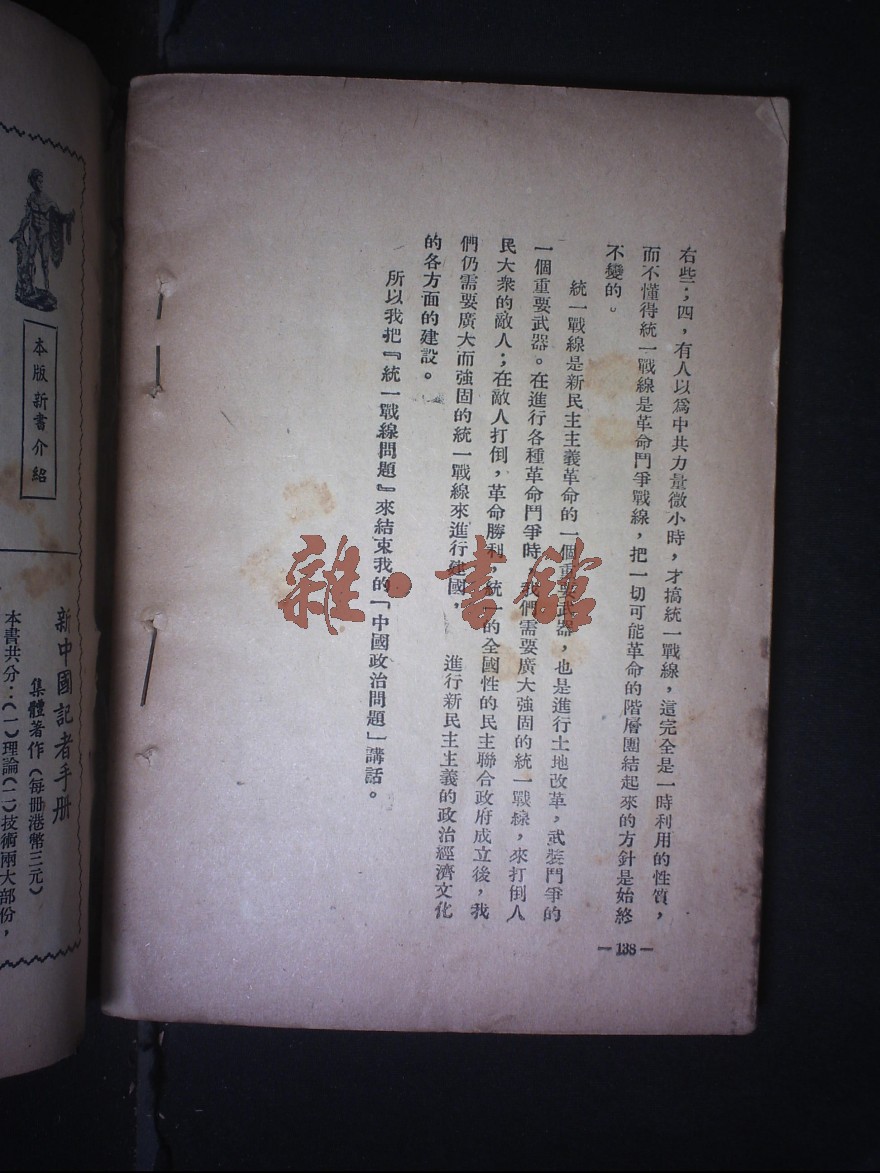 右些；四，有人以為中共力量微小時，才搞統一戰線，這完全是一時利用的性質，
而不懂得統一戰線是革命鬥爭戰線，把一切可能革命的階層團結起來的方針是始終
不變的。
統一戰線是新民主主義革命的一個重要武器，也是進行土地改革，武裝鬥爭的
一個重要武器。在進行各種革命鬥爭時，我們需要廣大強固的統一戰線，來打倒人
民大衆的敵人；在敵人打倒，革命勝利，統一的全國性的民主聯合政府成立後，我
們仍需要廣大而強固的統一戰線來進行建國， 進行新民主主義的政治經濟文化
的各方面的建設。
所以我把『統一戰線問題』來結束我的「中國政治問題」講話。
—138—
雜·書館
本版新書介紹
新中國記者手册
集體著作（每冊港幣三元）
本書共分：（一）理論（二）技術兩大部份，